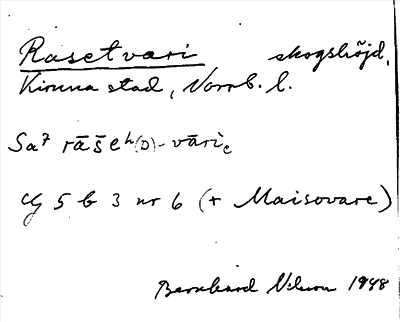 Rasetvari skogshöjd,
Kiruna stad, Norrb. l.
Sa⁷ rāšeʰ(D)-vāriͤ
5 b 3 nr 6 (+ Maisovare)
Bernhard Nilsson 1948